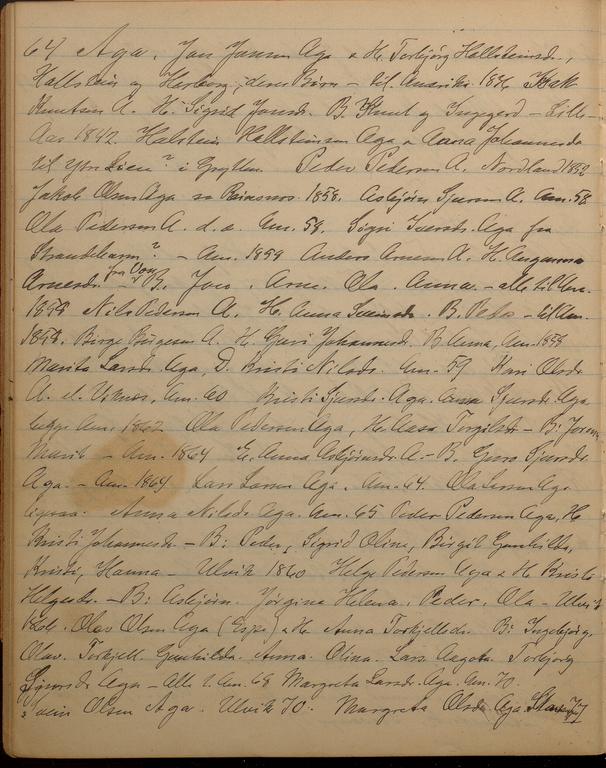 64 Aga. Jon Jonsen Aga & H. Torbjörg Hallsteinsd.,
Hallstein og Herborg, deres Börn - til Amerika 1836 Isak
Knutsen A. H. Sigrid Jonsd. B. Knut og Ingegerd - Lille-
Aas 1842. Halstein Hallsteinsen Aga & Anna Johannesd
til Ytre Lien? i Gryten. Peder Pedersen A. Nordland 1852
Jakob Olsen Aga 1858. Asbjörn Sjursen A. Am. 58
Ola Pedersen A. d.a. Am. 58. Sögni Iversd. Aga fra
Strandebarm? - Am. 1859 Anders Arnesen A. H. Anganna
Arnesd. fra Voss B. Jon. Arne. Ola. Anna. - alle til Am.
1858 Nils Pedersen A. H. Anna B. Peder - til Am.
1858. Börge Börgesen A. H. Guri Johannesd. B. Anna, Am. 1858
Marita Larsd. Aga, D. Kristi Nilsd. Am. 59 Kari Olsd.
A. el. Viknes, Am. 60 Kristi Sjursd. Aga. Sjursd. Aga
begge Am. 1862 Ola Pedersen Aga, H. Aasa Torgilsd - B:
Marit - Am. 1864 E. Anna Asbjörnsd. A. - B. Guro Sjursd.
Aga. - Am. 1864 Lars Larsen Aga. Am. 64. Ola Larsen Aga
ligesaa. Anna Nilsd. Aga. Am. 65 Peder Pedersen Aga, H.
Kristi Johannesd. - B: Peder, Sigrid Olina, Birgit Gunhilda,
Kristi, Hanna - Ulvik 1860 Helge Pedersen Aga & H. Kristi
Helgesd. - B: Asbjörn. Jörgina Helena. Peder. Ola - Ulvik
Olav Olsen Aga (Espe) & H. Anna Torkjellsd. B: Ingebjörg,
Olav. Torkjell. Gunhilda. Anna. Olina. Lars. Aagota. Torbjörg
Sjursd. Aga - Alle t. Am. 68 Margreta Larsd. Aga. Am. 70.
Svein Olsen Aga. Ulvik 70. Margreta Olsd. Aga 77